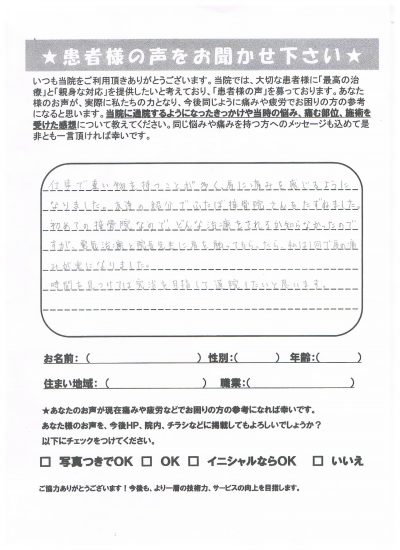 ★患者様の声をお聞かせ下さい★
いつも当院をご利用頂きありがとうございます。当院では、大切な患者様に「最高の治
療」と「親身な対応」を提供したいと考えており、「患者様の声」を募っております。あなた
様のお声が、実際に私たちの力となり、今後同じように痛みや疲労でお困りの方の参考
になると思います。当院に通院するようになったきっかけや当時の悩み、痛む部位、施術を
受けた感想について教えてください。同じ悩みや痛みを持つ方へのメッセージも込めて是
非とも一言頂ければ幸いです。
仕事で重い物を持つことが多く肩に痛みを感じるように
なりました。友達の紹介でふたば接骨院さんをたずねました。
初めての接骨院なので、どんな治療をされるか知らなかったので
すが、電気治療と院長先生に肩を触ってもらったら、私は1回で肩の痛
みが楽になりました。
時間を見つけては完治を目指して通院したいと思います。
お名前：（　　　）性別：（　　　）年齢：（　　　）
住まい地域：（　　　）職業：（　　　）
★あなたのお声が現在痛みや疲労などでお困りの方の参考になれば幸いです。
あなた様のお声を、今後HP、院内、チラシなどに掲載してもよろしいでしょうか？
以下にチェックをつけてください。
□ 写真つきでOK □ OK □ イニシャルならOK □ いいえ
ご協力ありがとうございます！今後も、より一層の技術力、サービスの向上を目指します。